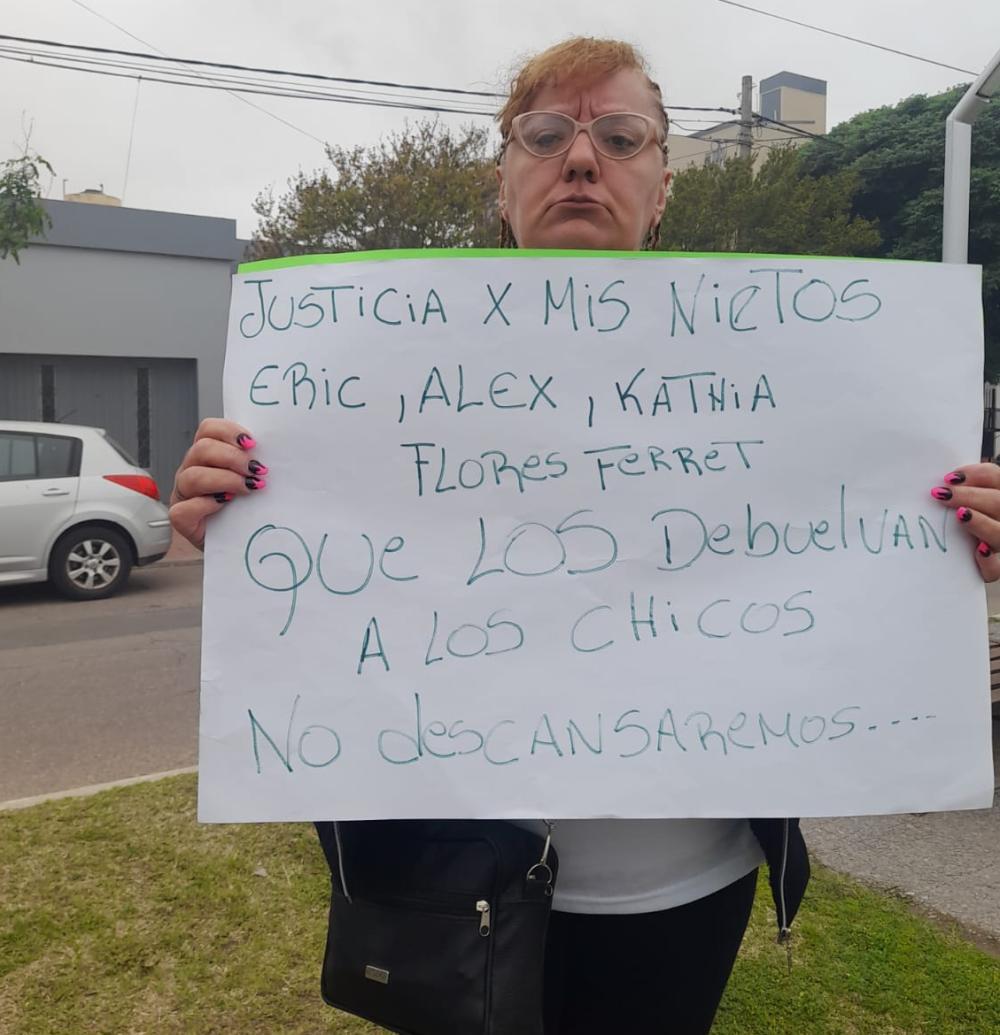 JUSTICIA X MIS NIETOS
ERIC, ALEX, KATHIA
FLORES FERRET
QUE LOS DEBUELVAN
A LOS CHICOS
NO DESCANSAREMOS....